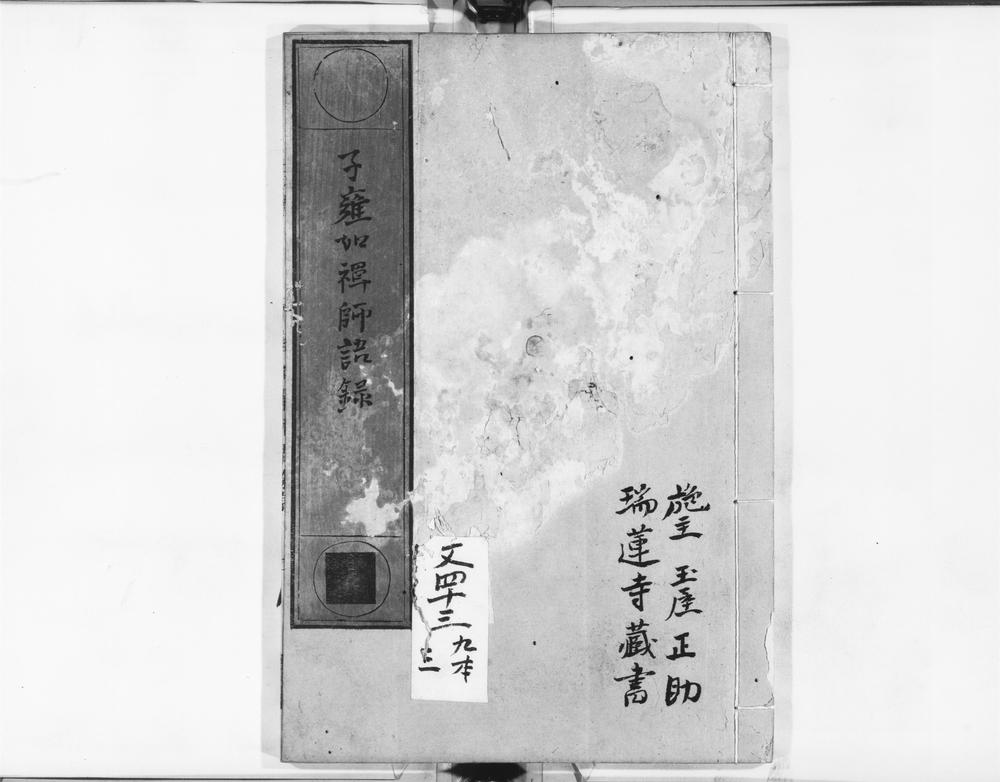 施主 玉屋 正助
瑞蓮寺藏書
文四十三
九本
二
子雍如禪師語錄